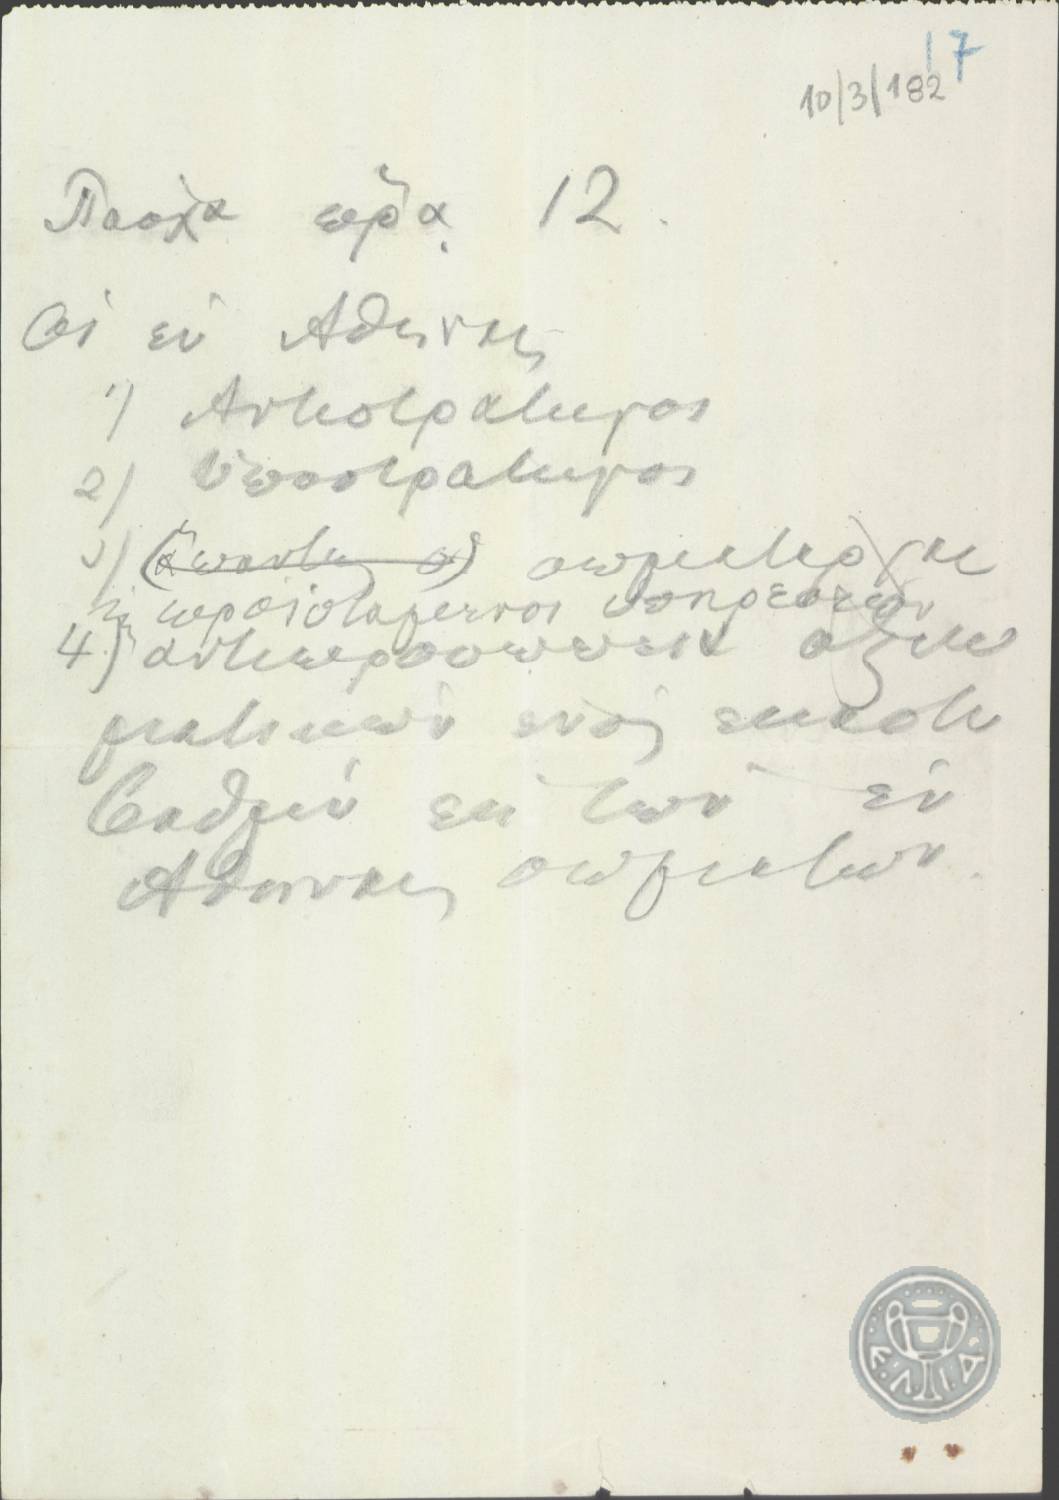 17
10/3/182
Πάσχα ὥρᾳ 12.
Οἱ ἐν Ἀθήναις
1) Ἀντιστράτηγοι
2) Ὑποστράτηγοι
3) (ἅπαντες οἱ) σωματάρχαι
προϊστάμενοι ὑπηρεσιῶν
4) ἀντιπροσωπεία ἀξιω
ματικῶν ἑνὸς ἑκάστου
βαθμοῦ ἐκ τῶν ἐν
Ἀθήναις σωμάτων.
Ε.Λ.Ι.Α